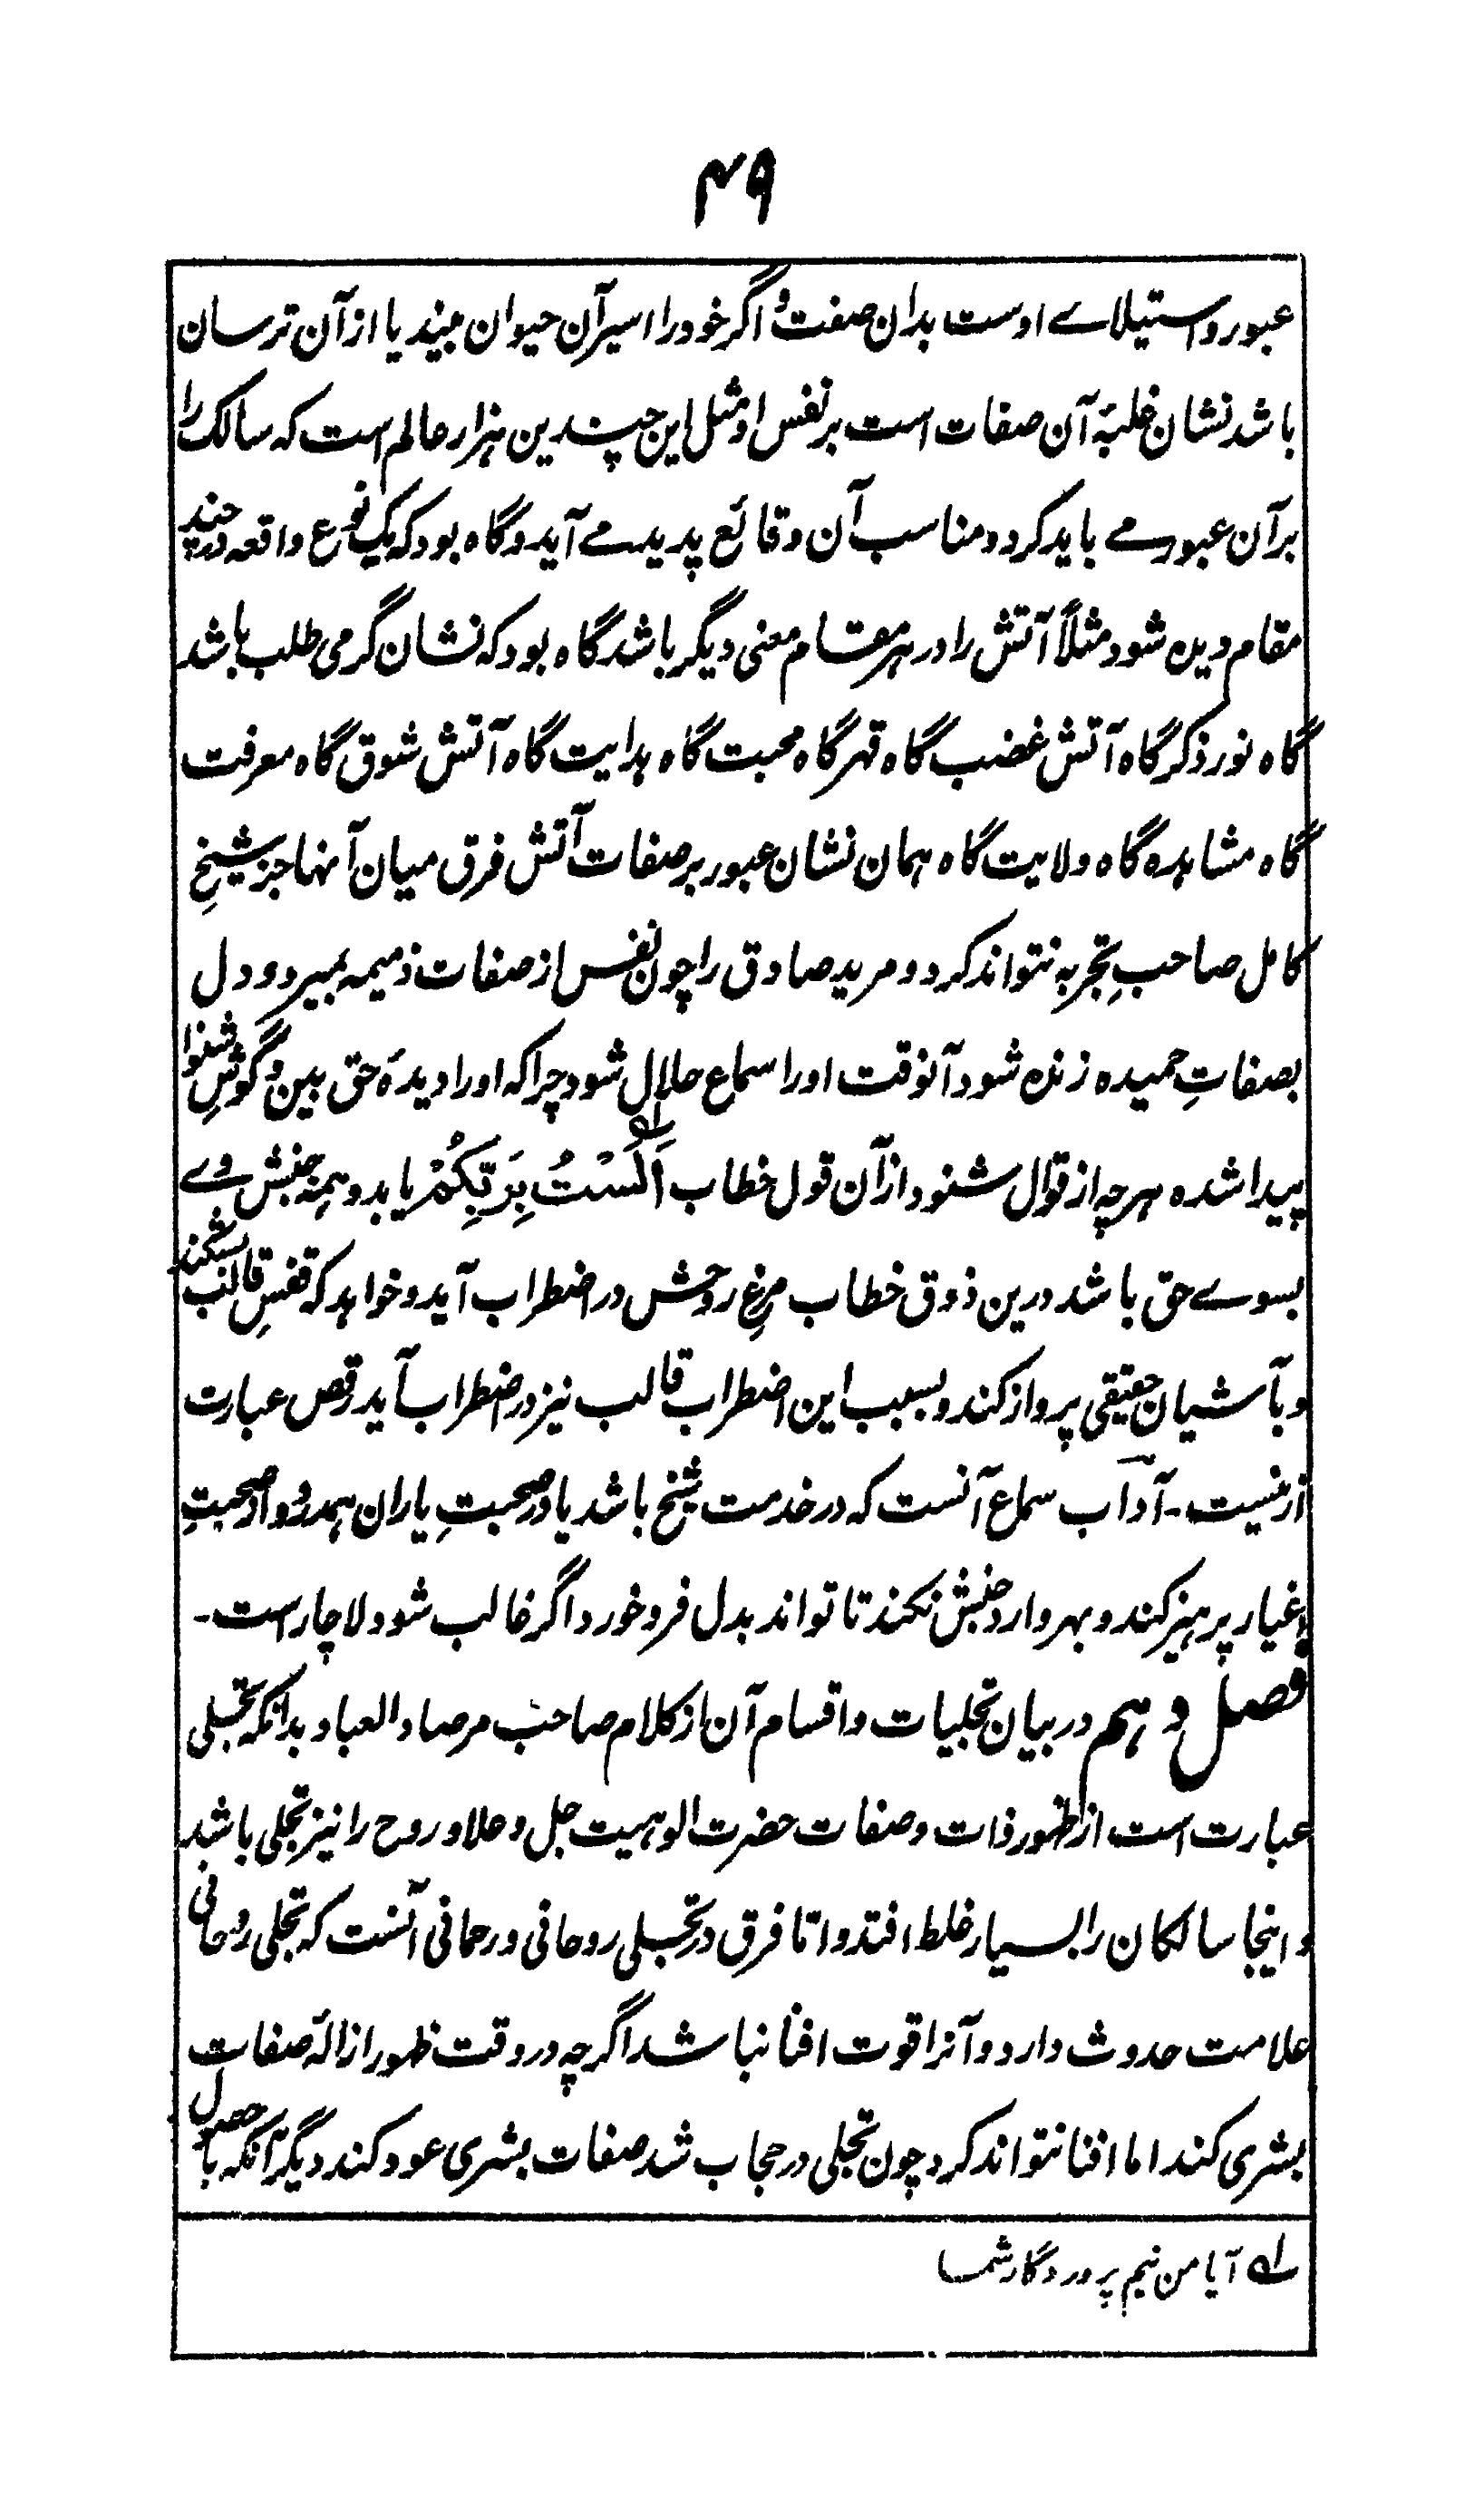 ۴۹
عبور و استیلاے اوست بدان صفت و اگر خود را اسیر آن حیوان بیند یا از آن ترسان
باشد نشان غلبۂ آن صفات است بر نفس او مثل این چندین هزار عالم است که سالک را
برآن عبور مے باید کرد و مناسب آن وقائع پدید مے آید و گاه بود که یک نوع واقعه در چند
مقام دیده شود مثلاً آتش را در هر مقام معنی دیگر باشد گاه بود که نشان گرمی طلب باشد
گاه نور ذکر گاه آتش غضب گاه قهر گاه محبت گاه هدایت گاه آتش شوق گاه معرفت
گاه مشاهده گاه ولایت گاه همان نشان عبور بر صفات آتش فرق میان آنها جز شیخِ
کامل صاحبِ تجربه نتواند کرد و مرید صادق را چون نفس از صفات ذمیمه بمیرد و دل
بصفاتِ حمیده زنده شود آنوقت اورا سماع حلال شود چراکه اورا دیدۂ حق بین و گوشِ شنوا
پیدا شده هرچه از قوال شنود از آن قول خطاب اَلَسْتُ بِرَبِّکُمْ ؎۱ یابد و همه جنبش وے
بسوے حق باشد درین ذوق خطاب مرغِ روحش در اضطراب آید و خواهد که قفسِ قالب بشکند
و بآشیان حقیقی پرواز کند و بسبب این اضطراب قالب نیز در اضطراب آید رقص عبارت
ازینست - آداب سماع آنست که در خدمت شیخ باشد یا در صحبتِ یاران همدرد و از صحبتِ
اغیار پرهیز کند و بهر وارد جنبش نکند تا تواند بدل فرو خورد اگر غالب شود لاچار است -
فصل دهم در بیان تجلیات و اقسام آن از کلام صاحب مرصاد العباد بدانکه تجلی
عبارت است از ظهور ذات و صفات حضرت الوهیت جل و علا و روح را نیز تجلی باشد
و اینجا سالکان را بسیار غلط افتد و اما فرق در تجلی روحانی و رحمانی آنست که تجلی روحانی
علامت حدوث دارد و آنرا قوت افنا نباشد اگرچه در وقت ظهور ازالۂ صفات
بشری کند اما افنا نتواند کرد چون تجلی در حجاب شد صفات بشری عود کند دیگر آنکه با حصول
؎۱ آیا من نیم پروردگار شما